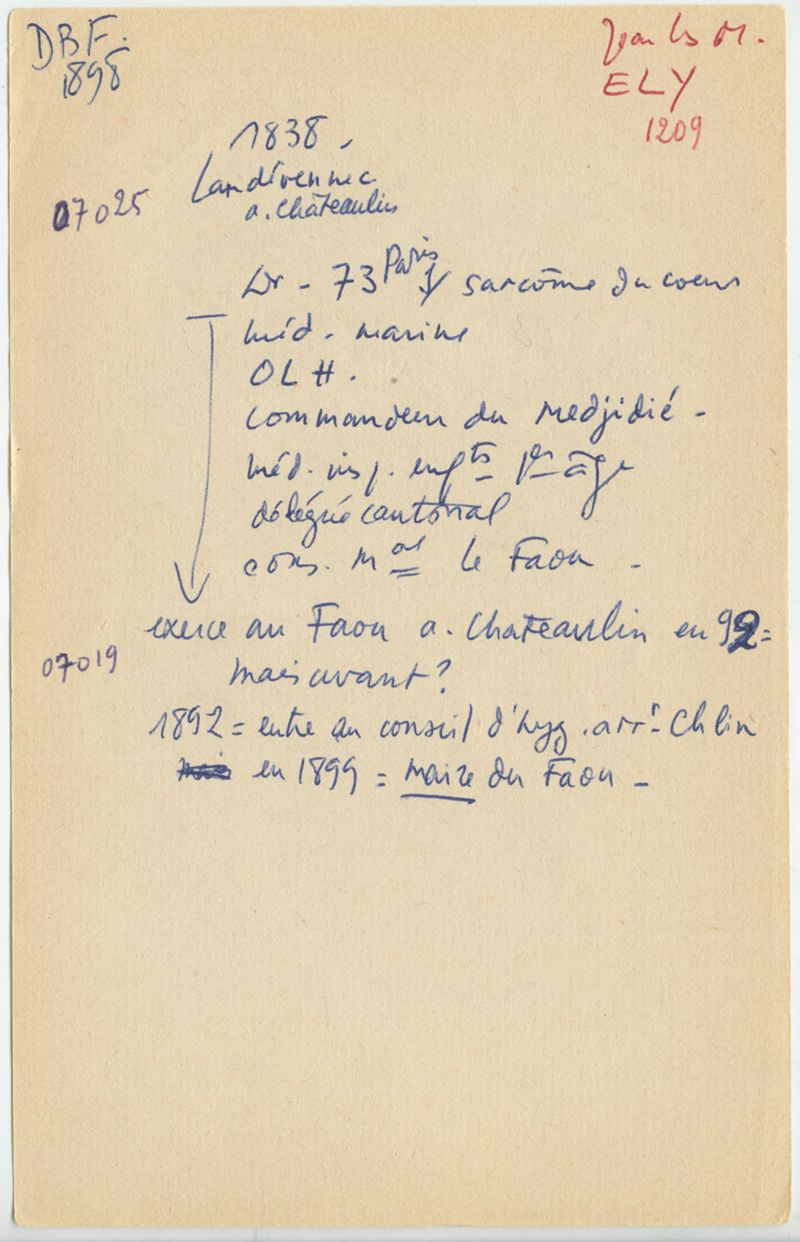 DBF.
1898
Jean Ls M.
ELY
1209
1838.
Landévennec
a. Châteaulin
07025
Dr - 73 Paris s/ sarcôme du coeur
méd. marine
OLH.
commandeur du Medjidié -
méd. insp. enfts 1er âge
délégué cantonal
cons. mal le Faou -
exerce au Faou a. Chateaulin en 92 =
07019
mais avant ?
1892 = entre au conseil d'hyg. arrt Chlin
en 1899 = maire du Faou -